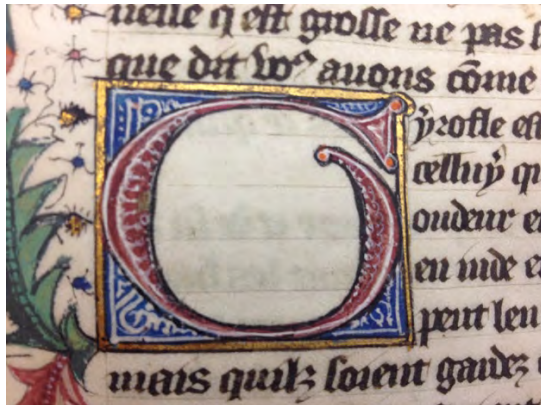 nelle q̃ est grosse ne pas
que dit voꝰ auons cõme
G ẏrofle est
celluẏ q
oudeur e
en inde e
peut leu
mais quilz soient gardez